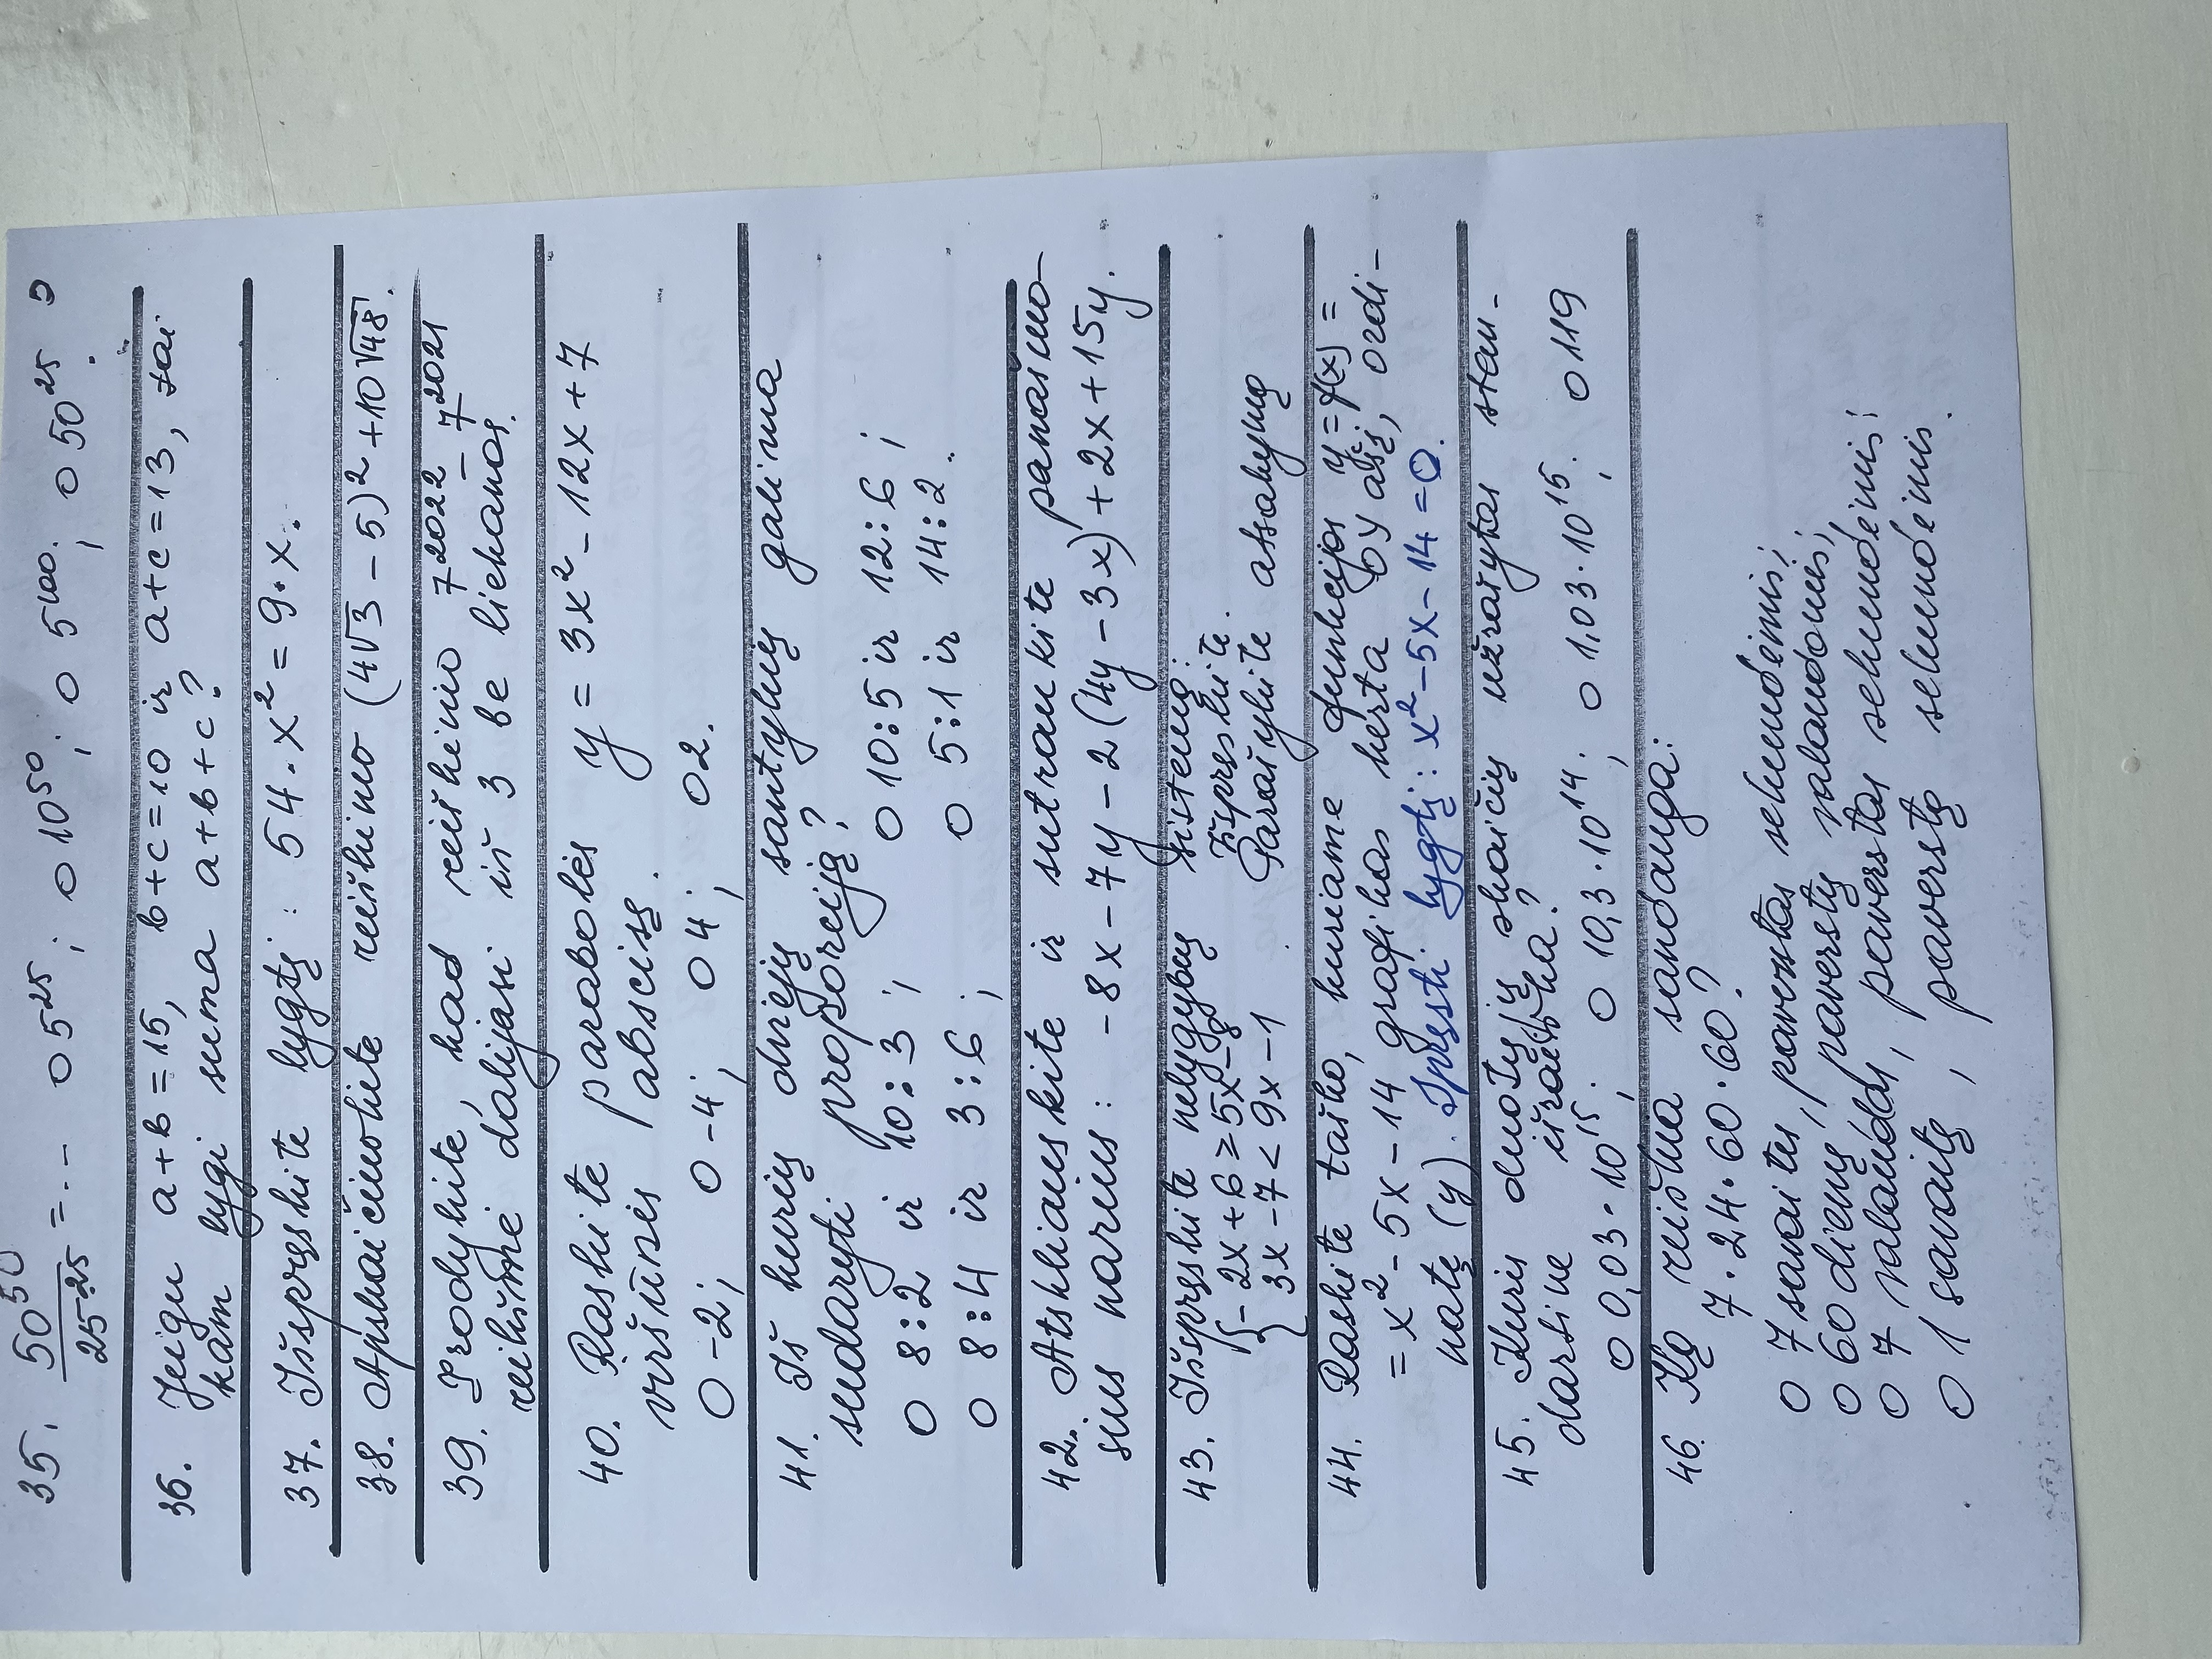 35. 50⁵⁰ / 25²⁵ = ... ○ 5²⁵ ; ○ 10⁵⁰ ; ○ 5¹⁰⁰ ; ○ 50²⁵ .
36. Jeigu a+b=15, b+c=10 ir a+c=13, tai
kam lygi suma a+b+c?
37. Išspręskite lygtį : 54·x² = 9·x.
38. Apskaičiuokite reiškinio (4√3 − 5)² + 10√48 .
39. Įrodykite, kad reiškinio 7²⁰²² − 7²⁰²¹
reikšmė dalijasi iš 3 be liekanos.
40. Raskite parabolės y = 3x² − 12x + 7
viršūnės abscisę .
○ −2 ; ○ −4 ; ○ 4 ; ○ 2.
41. Iš kurių dviejų santykių galima
sudaryti proporciją?
○ 8:2 ir 10:3 ; ○ 10:5 ir 12:6 ;
○ 8:4 ir 3:6 ; ○ 5:1 ir 14:2 .
42. Atskliauskite ir sutraukite panašiuo-
sius narius : −8x − 7y − 2(4y − 3x) + 2x + 15y.
43. Išspręskite nelygybių sistemą.
{ −2x + 6 ≥ 5x − 8 Išpręskite.
3x − 7 < 9x − 1 Parašykite atsakymą
44. Raskite taško, kuriame funkcijos y = f(x) =
= x² − 5x − 14 grafikas kerta oy ašį, ordi-
natę (y). Spręsti lygtį : x² − 5x − 14 = 0.
45. Kuris duotųjų skaičių užrašytas stan-
dartine išraiška?
○ 0,03·10¹⁵ ; ○ 10,3·10¹⁴ ; ○ 1,03·10¹⁵ ; ○ 119
46. Ką reiškia sandauga:
7·24·60·60 ?
○ 7 savaites, paverstas sekundėmis;
○ 60 dienų, paverstų valandomis;
○ 7 valandas, paverstas sekundėmis;
○ 1 savaitę, paverstą sekundėmis.